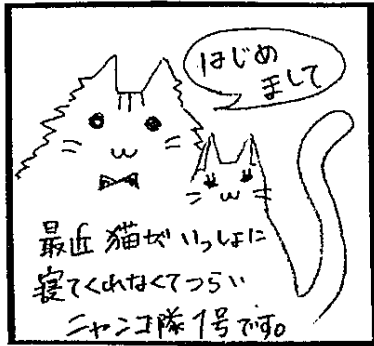 はじめ
まして
最近 猫がいっしょに
寝てくれなくてつらい
ニャンコ隊1号です。